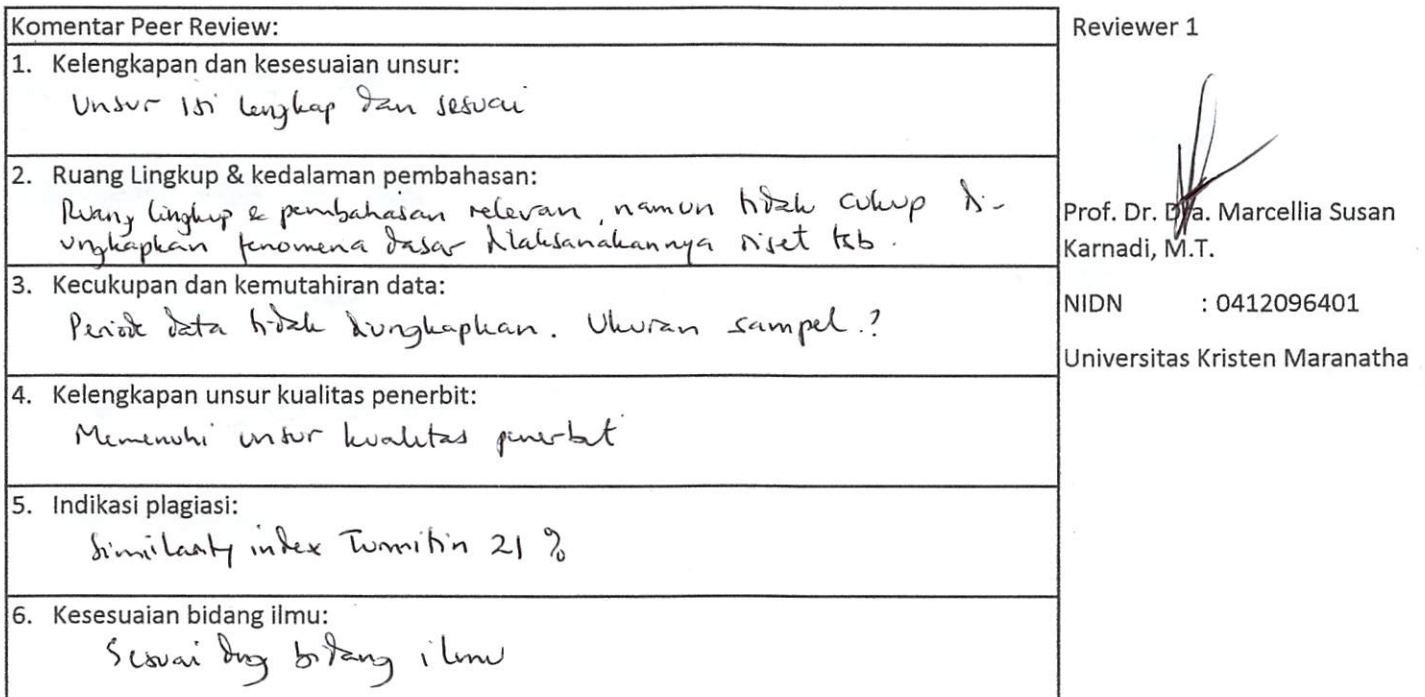 Komentar Peer Review:
1. Kelengkapan dan kesesuaian unsur:
Unsur isi lengkap dan sesuai
2. Ruang Lingkup & kedalaman pembahasan:
Ruang lingkup & pembahasan relevan, namun tidak cukup di-
ungkapkan fenomena dasar dilaksanakannya riset tsb.
3. Kecukupan dan kemutahiran data:
Periode data tidak diungkapkan. Ukuran sampel.?
4. Kelengkapan unsur kualitas penerbit:
Memenuhi unsur kualitas penerbit
5. Indikasi plagiasi:
Similarity index Turnitin 21 %
6. Kesesuaian bidang ilmu:
Sesuai dng bidang ilmu
Reviewer 1
Prof. Dr. Dra. Marcellia Susan
Karnadi, M.T.
NIDN : 0412096401
Universitas Kristen Maranatha